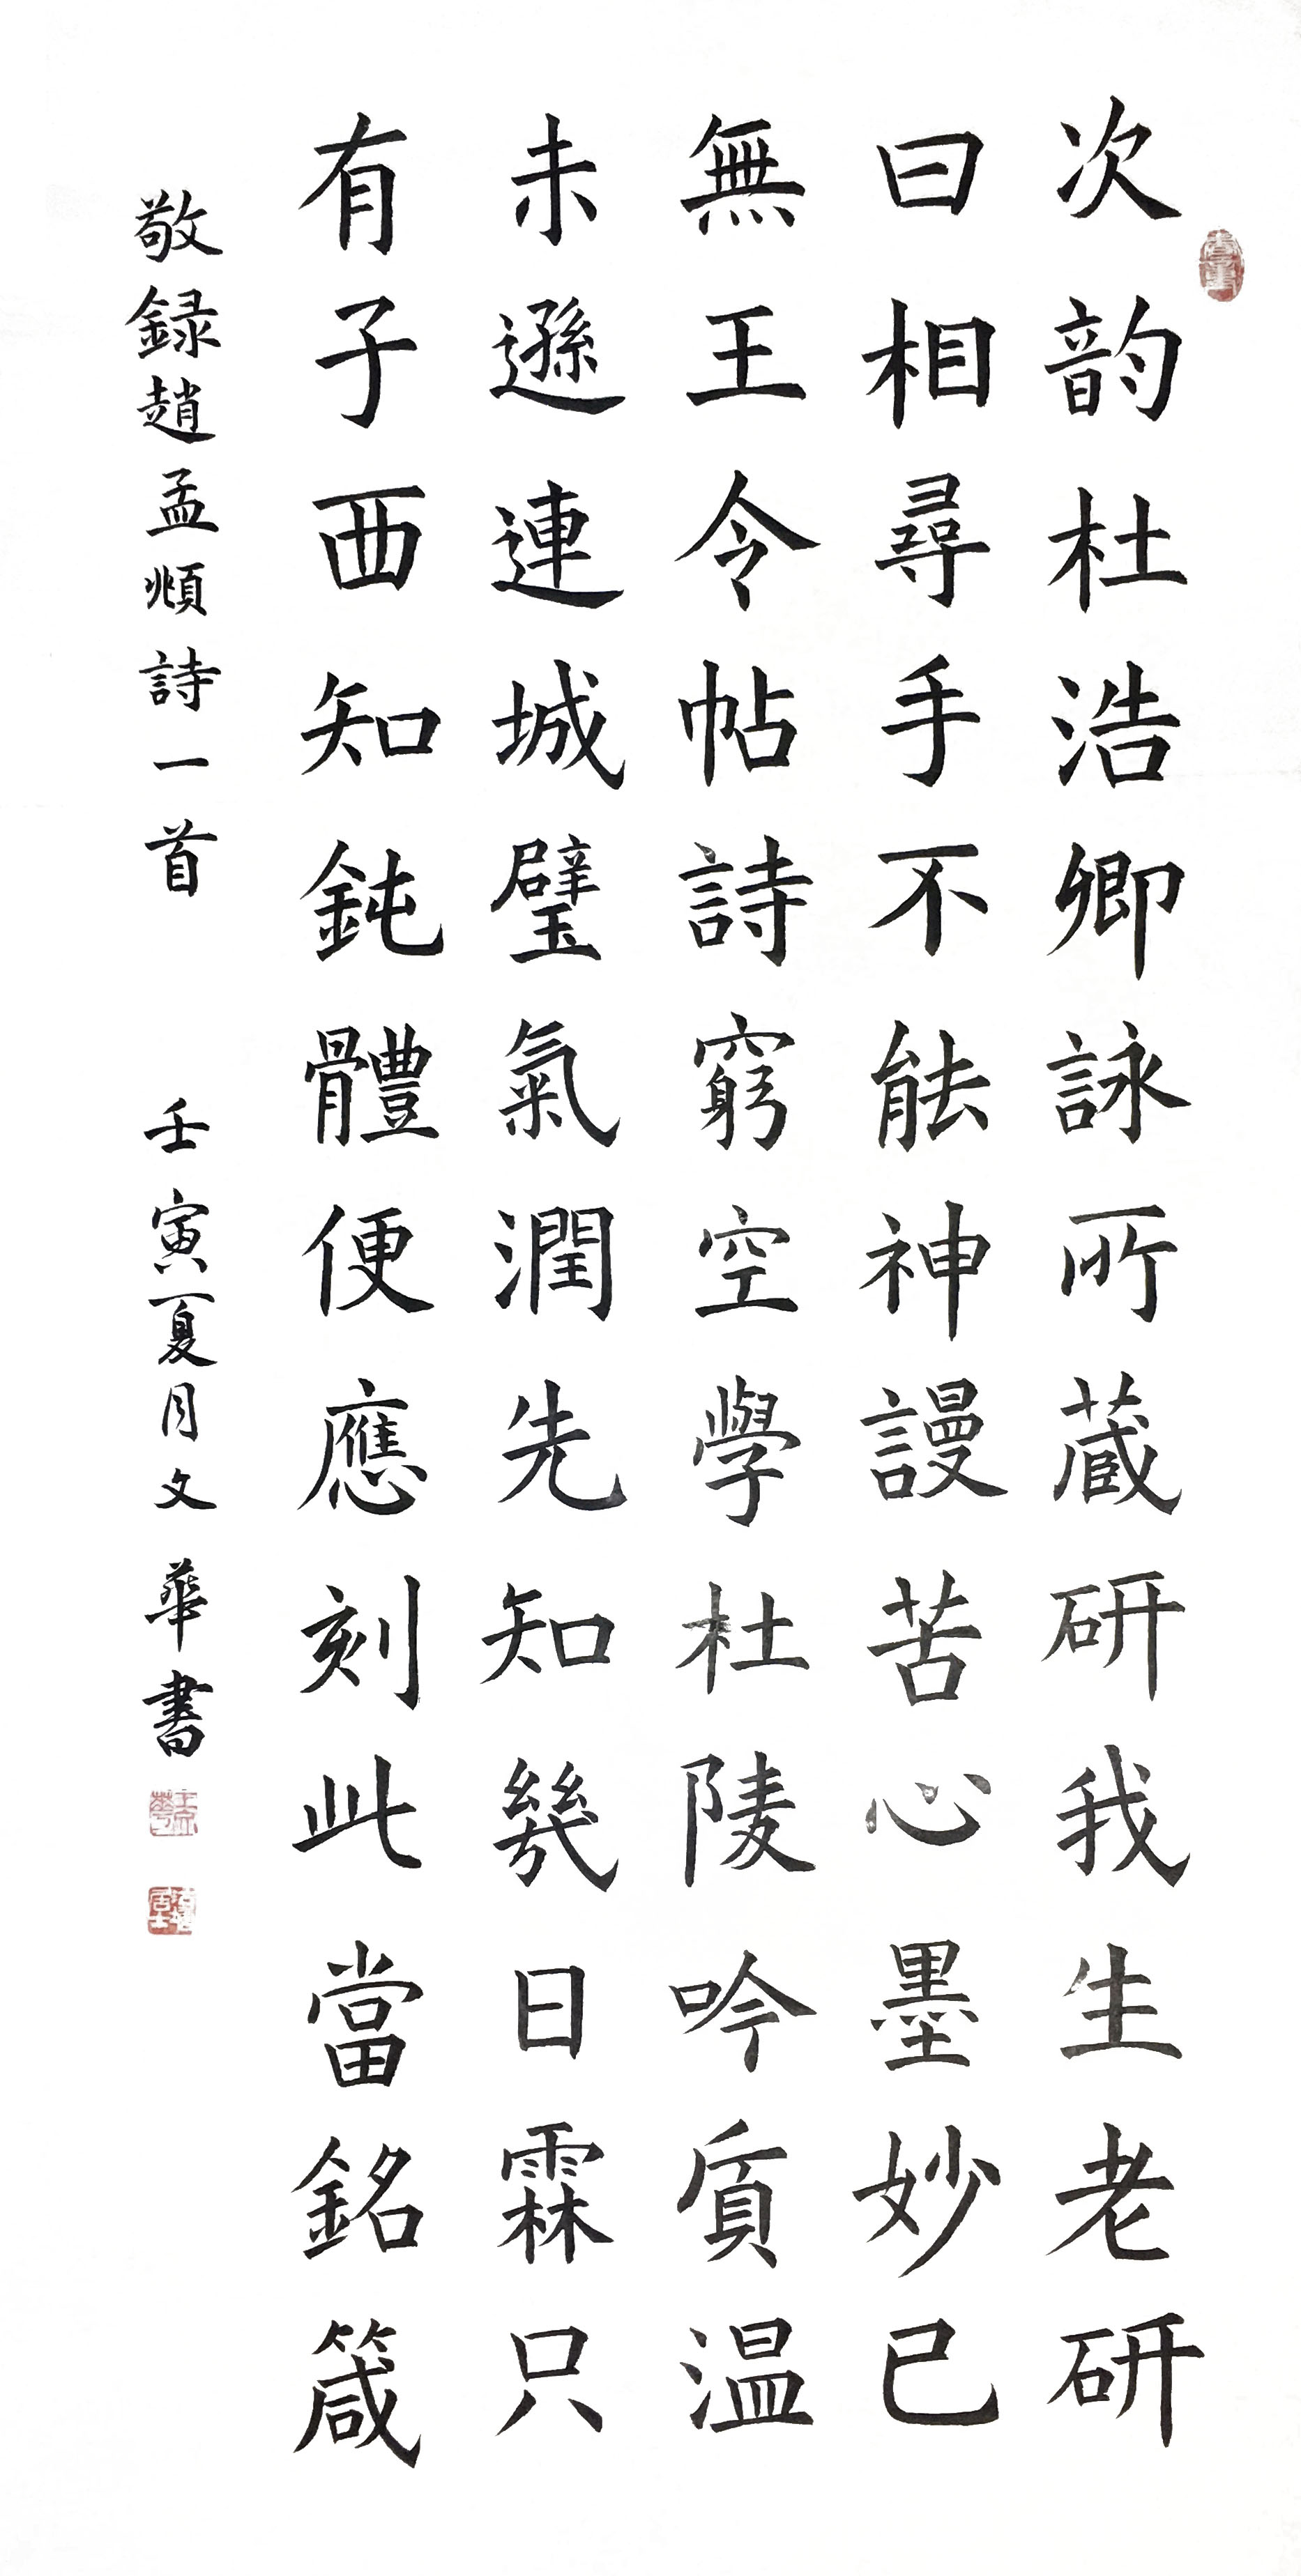 次韵杜浩卿詠所蔵研我生老研
曰相尋手不能神謾苦心墨妙已
無王令帖詩窮空學杜陵吟質温
未遜連城璧氣潤先知幾日霖只
有子西知鈍體便應刻此當銘箴
敬録趙孟頫詩一首 壬寅夏月文華書